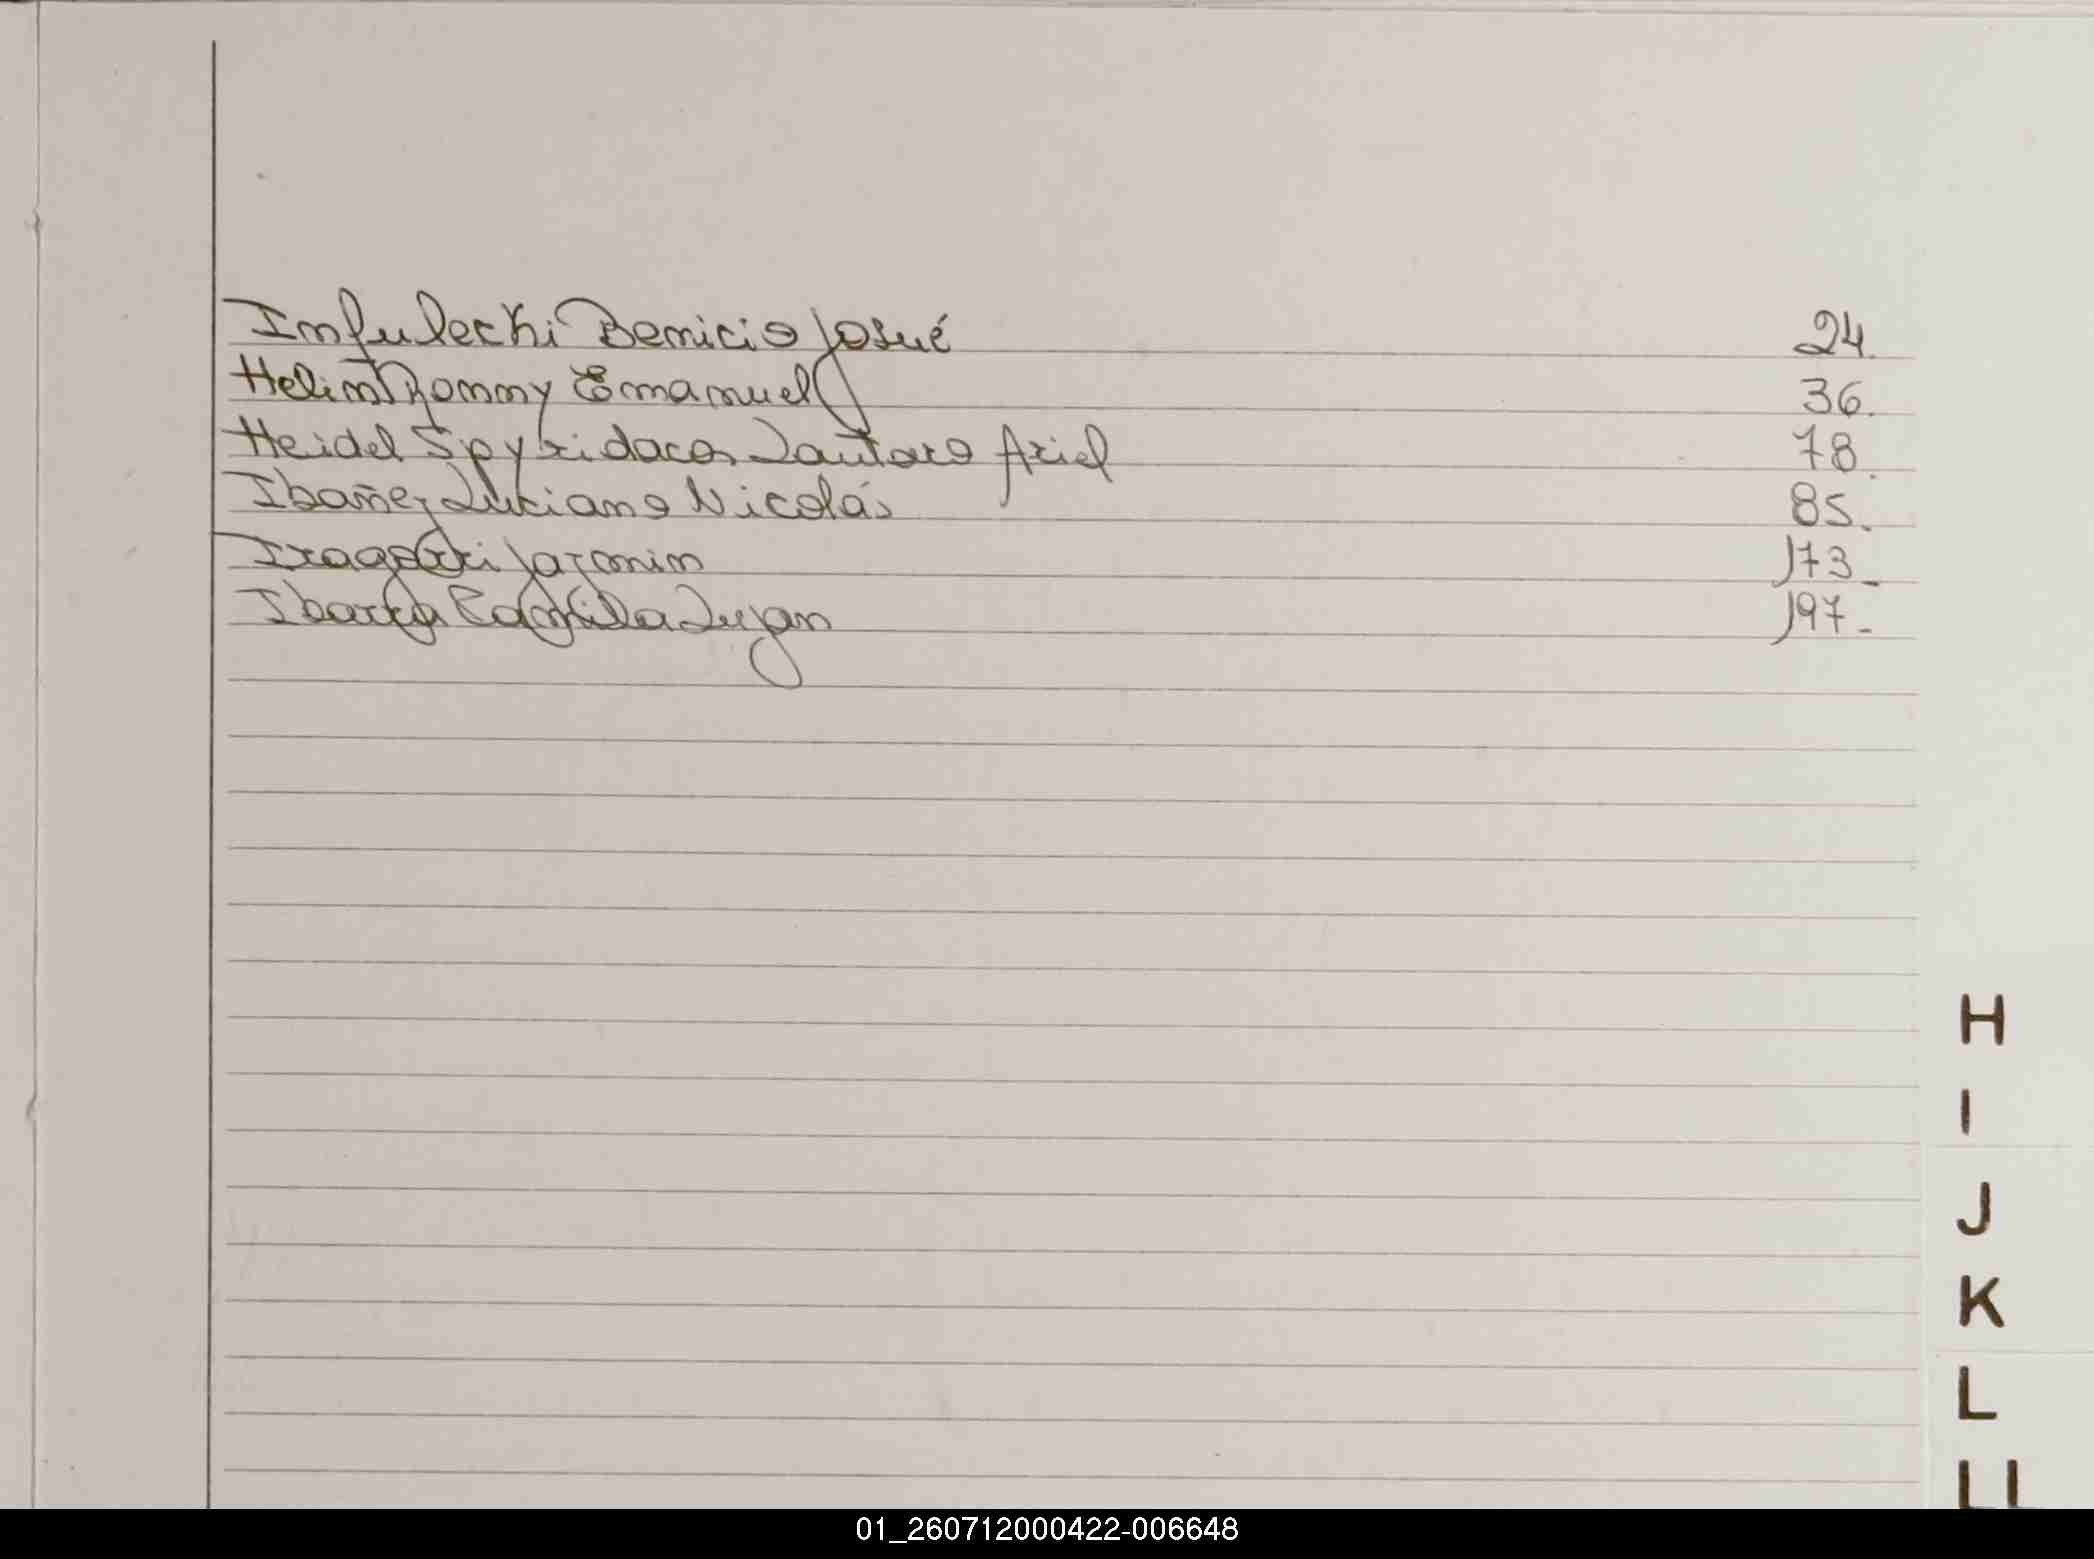 Infulechi Benicio Josué 24.
Helin Rommy Emanuel 36.
Heidel Spyridacos Lautaro Ariel 78.
Ibañez Luciano Nicolás 85.
Iragorri Jazmin 173-
Ibarra Camila Lujan 197-
H
I
J
K
L
LL
01_260712000422-006648